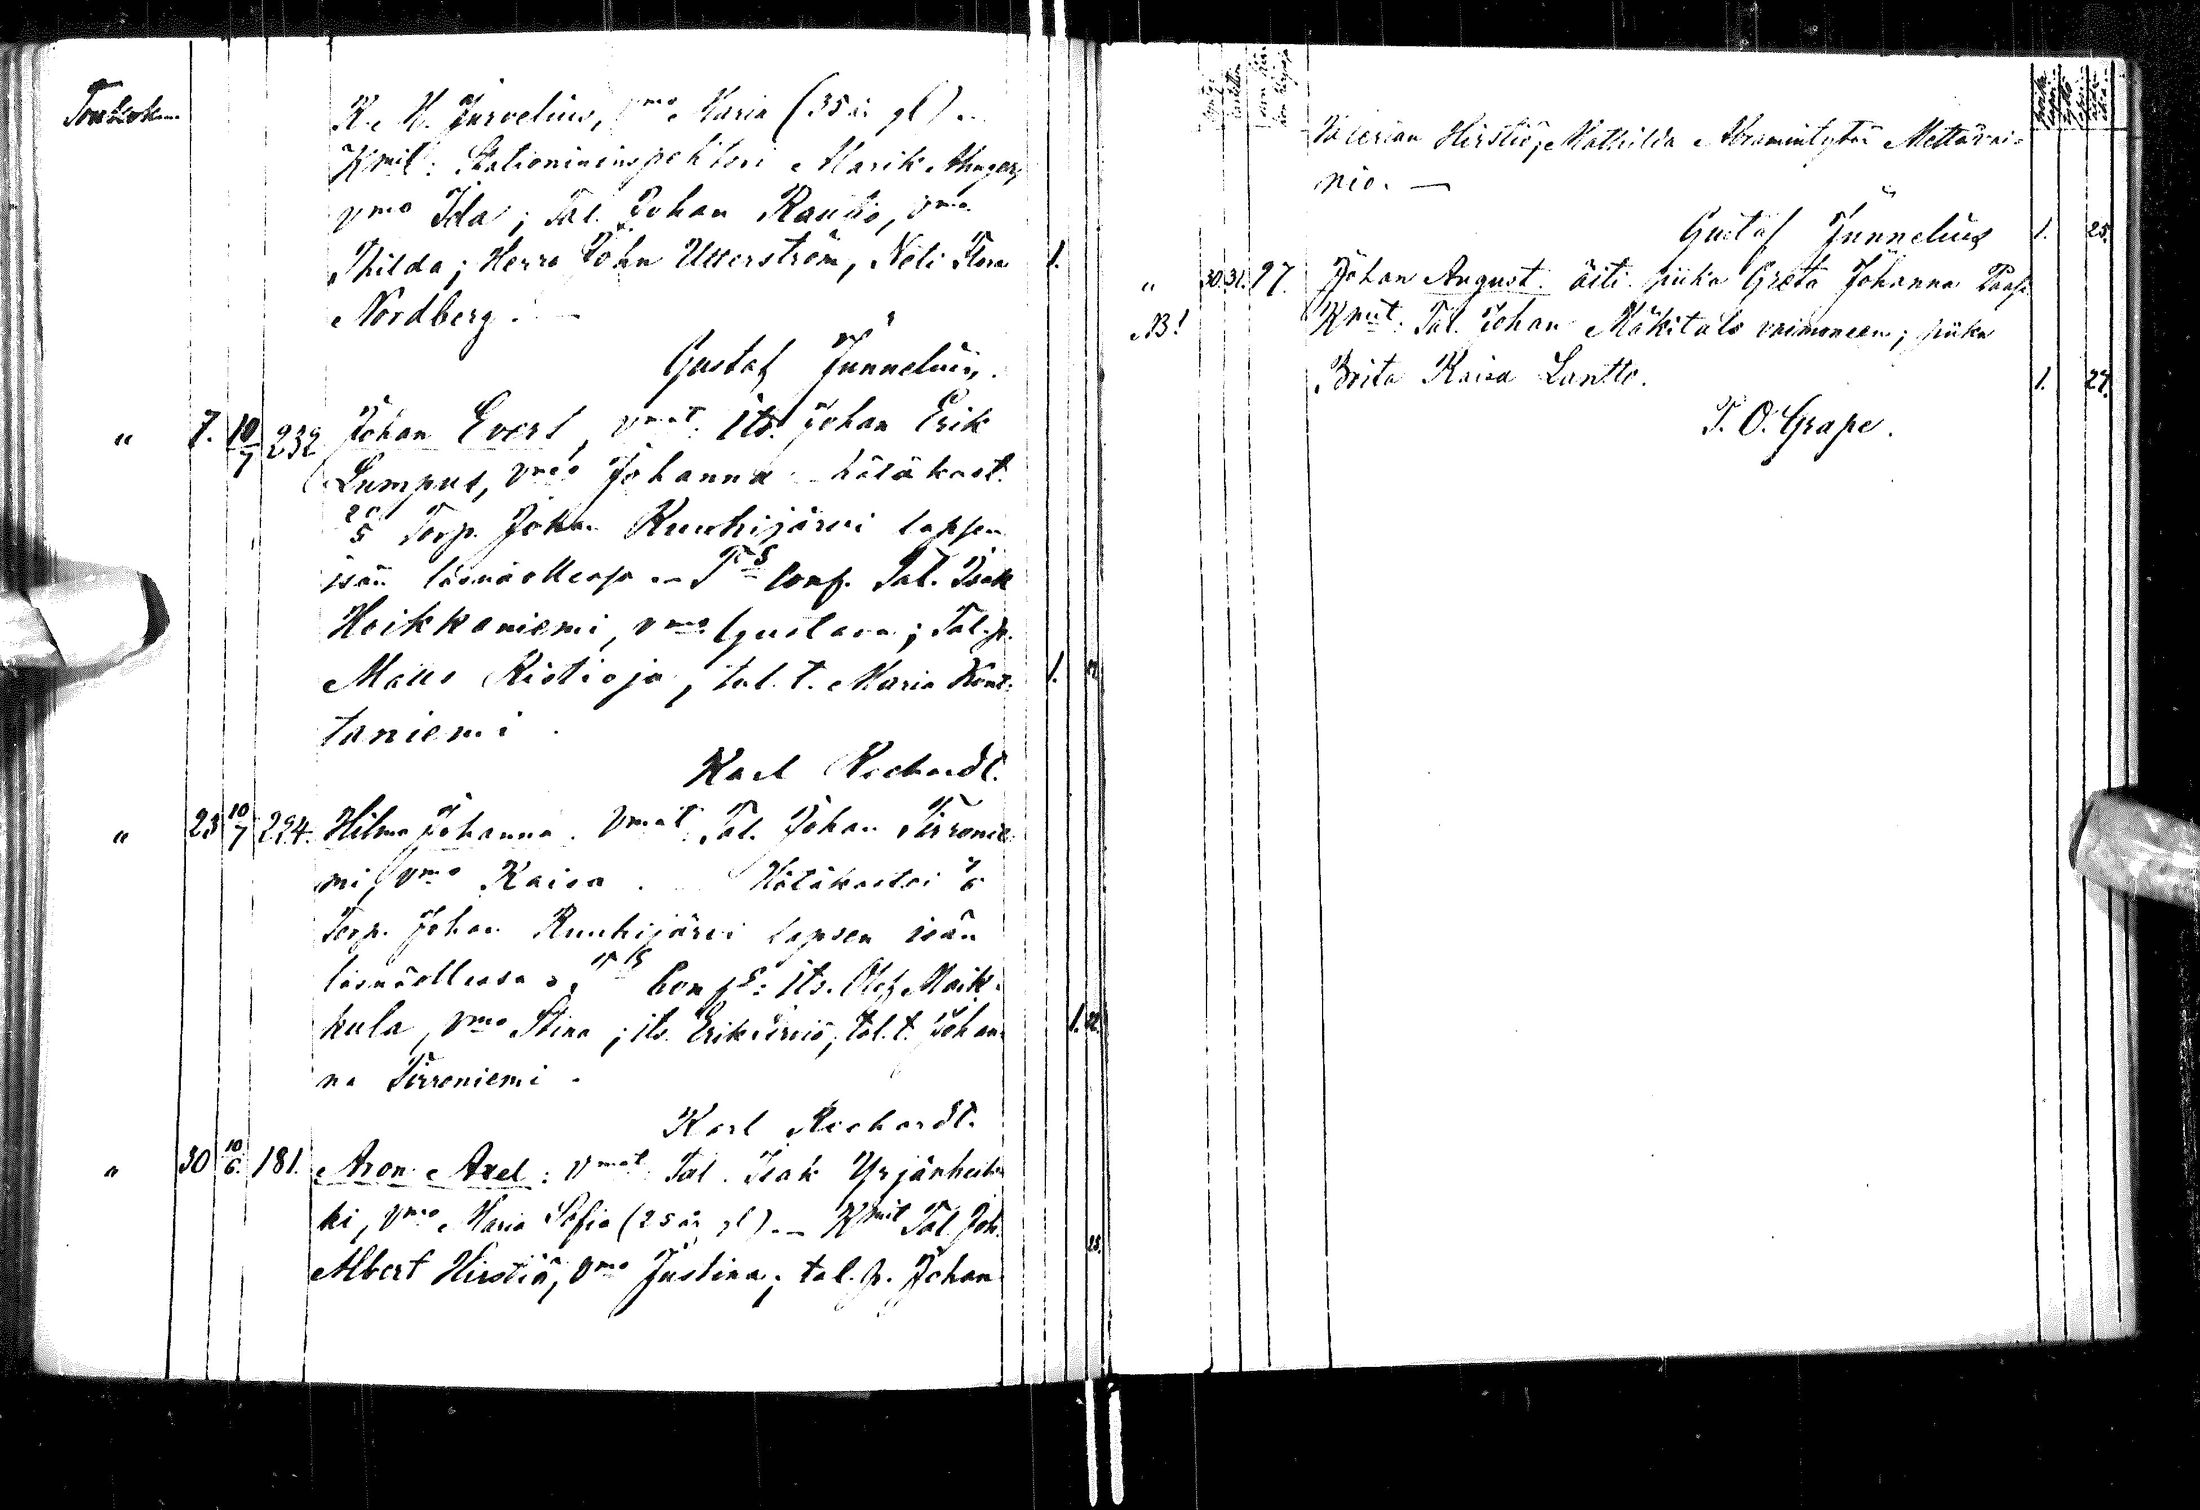 Toukok.
K. H. Jurvelius, vmo Maria (35 år gl).
Kmit: Stationininspehtori Marik
vmo Ida; Tal. Johan Rautio, vmo
Hilda; Herra John Utterström, Neli Flora 1.
Nordberg. —
Gustaf Junnelius.
" 7. 10/7 232 Johan Evert, vmat: its. Johan Erik
Lumpus, vmo Johanna hätäkast.
20/5 Torp. Johan Ruuhijärvi lapsen
isän läsnäollessa — Ts Conf. Tal. Isak
Heikkaniemi, vmo Gustava; Tal. p.
Matts Ristioja, tal. t. Maria Kont- 1.
taniemi.
Karl Rechardt.
" 23 10/7 224. Hilma Johanna. Vmat Tal. Johan Törronie-
mi, vmo Kaisa. Hätäkastoi
Torp. Johan Ruuhijärvi lapsen isän
läsnäollessa. Ts Confs: its. Olof Maik-
kula, vmo Stina; its. Erik Sirviö; tal. t. Johan- 1. 22.
na Törroniemi.
Karl Rechardt.
" 30 10/6. 181. Aron Axel: Vmat Tal. Isak Yrjänheik-
ki, vmo Maria Sofia (25 år gl). — Kmit Tal. Joh.
Albert Hirstiö, vmo Justina; tal. p. Johan 25.
Valerian Hirstiö; Mathilda Abramintytär Mettävai-
nio. —
Gustaf Junnelius 1. 25.
" 30. 31. 97. Johan August. äiti piika Greta Johanna
B! Kmit: Tal. Johan Mäkitalo vaimoneen; piika
Brita Kaisa Lantto. 1. 24.
T. O. Grape.